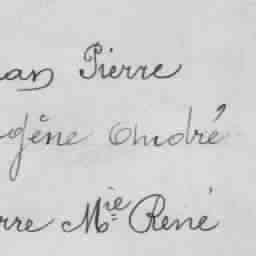 ean Pierre
gène André
erre Mie René